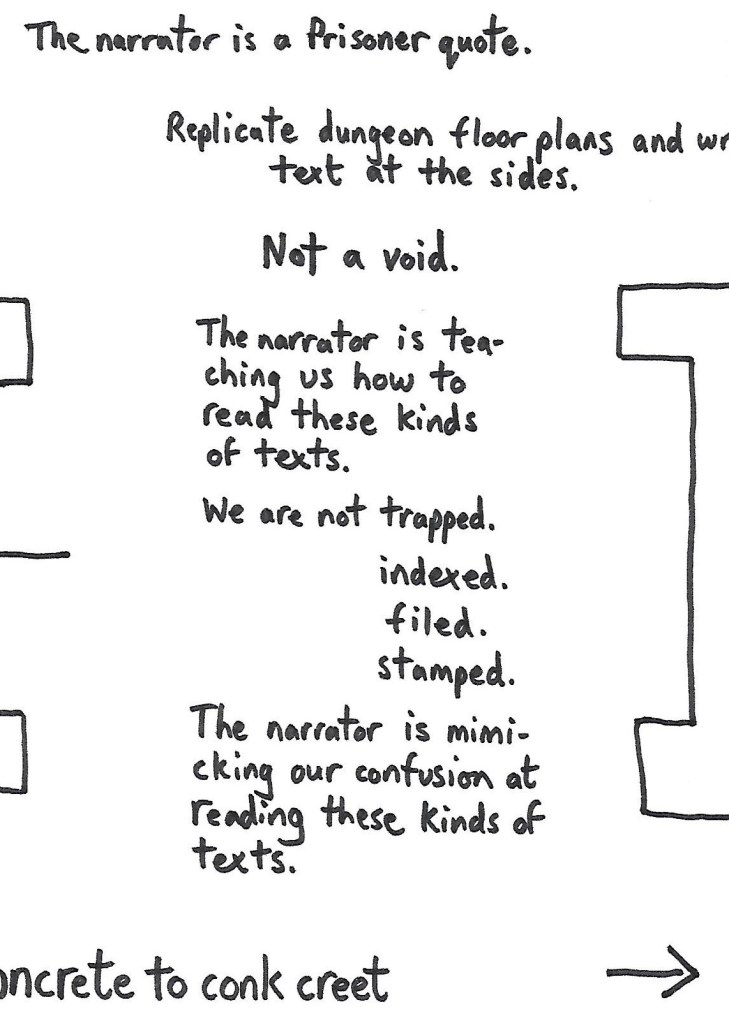 The narrator is a Prisoner quote.
Replicate dungeon floor plans and wr
text at the sides.
Not a void.
The narrator is tea-
ching us how to
read these kinds
of texts.
We are not trapped.
indexed.
filed.
stamped.
The narrator is mimi-
cking our confusion at
reading these kinds of
texts.
oncrete to conk creet